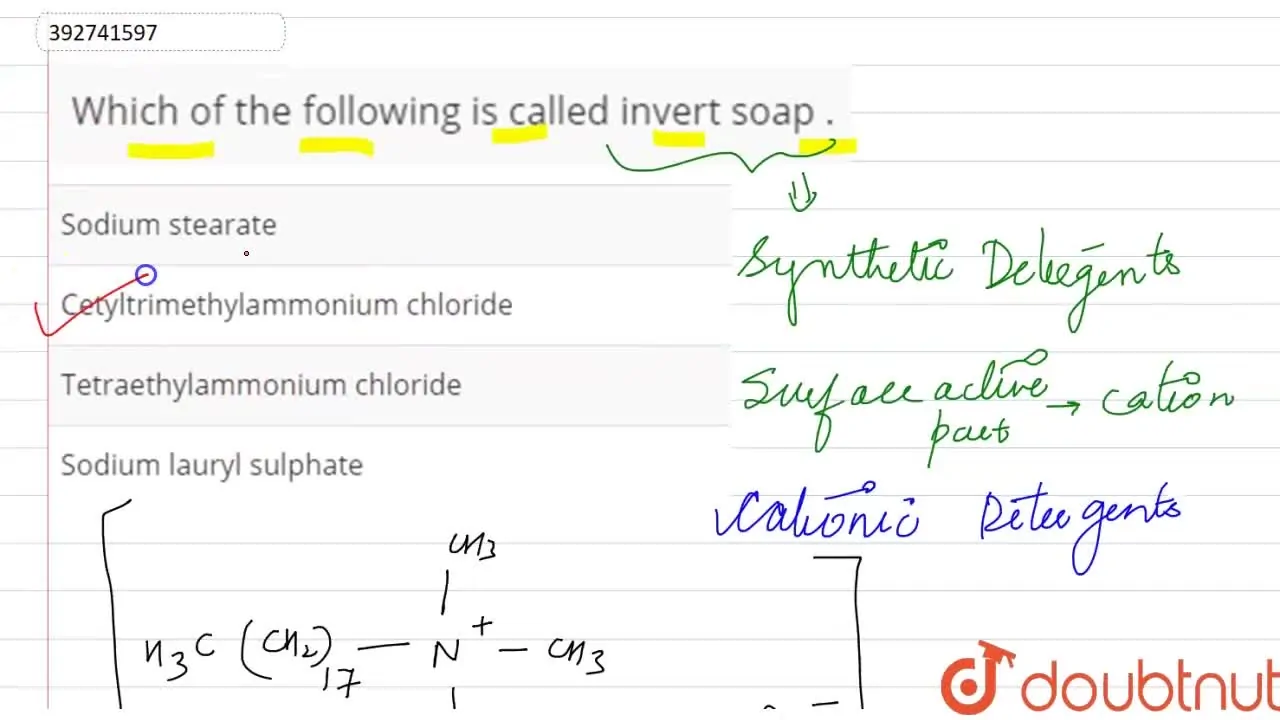 392741597
Which of the following is called invert soap .
Sodium stearate
Cetyltrimethylammonium chloride
Tetraethylammonium chloride
Sodium lauryl sulphate
Synthetic Detergents
Surface active part → cation
Cationic Detergents
CH3
H3C (CH2)17 — N+ — CH3
doubtnut